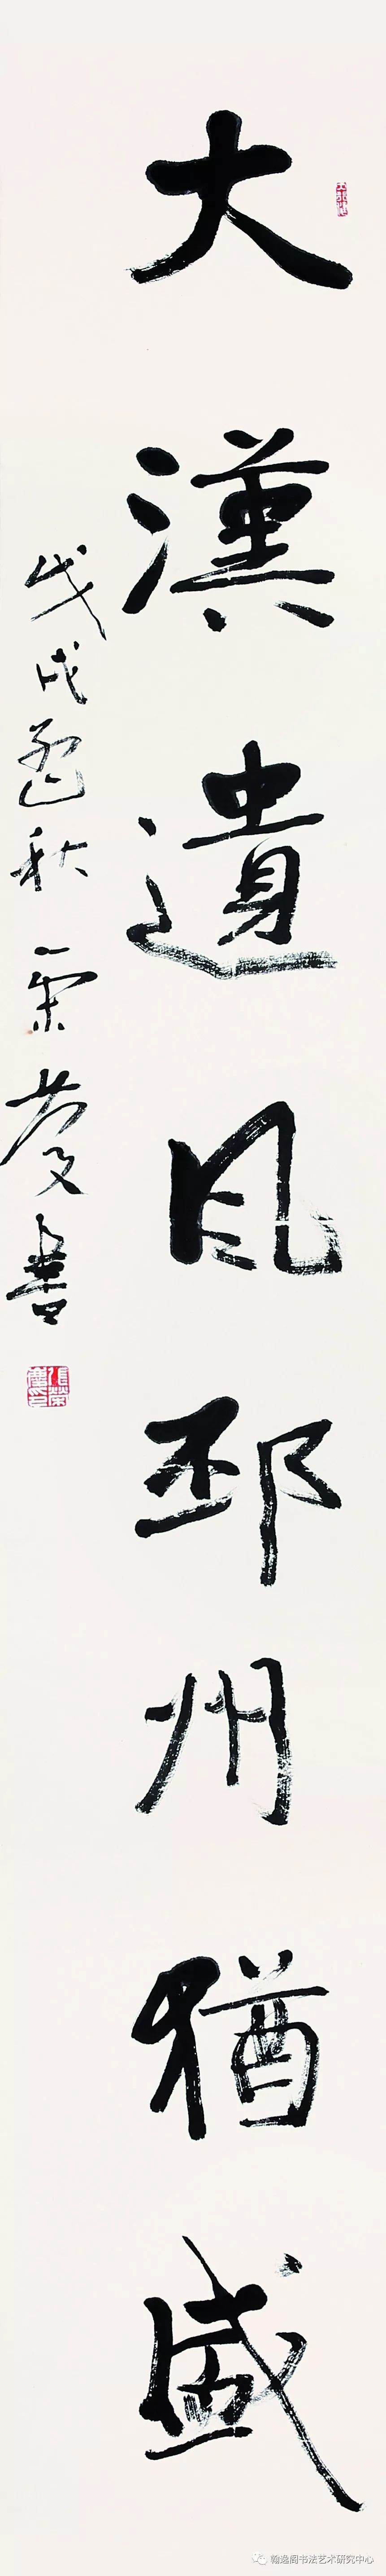 大漢遺風邳州猶盛
戊戌孟秋榮慶書
翰逸阁书法艺术研究中心